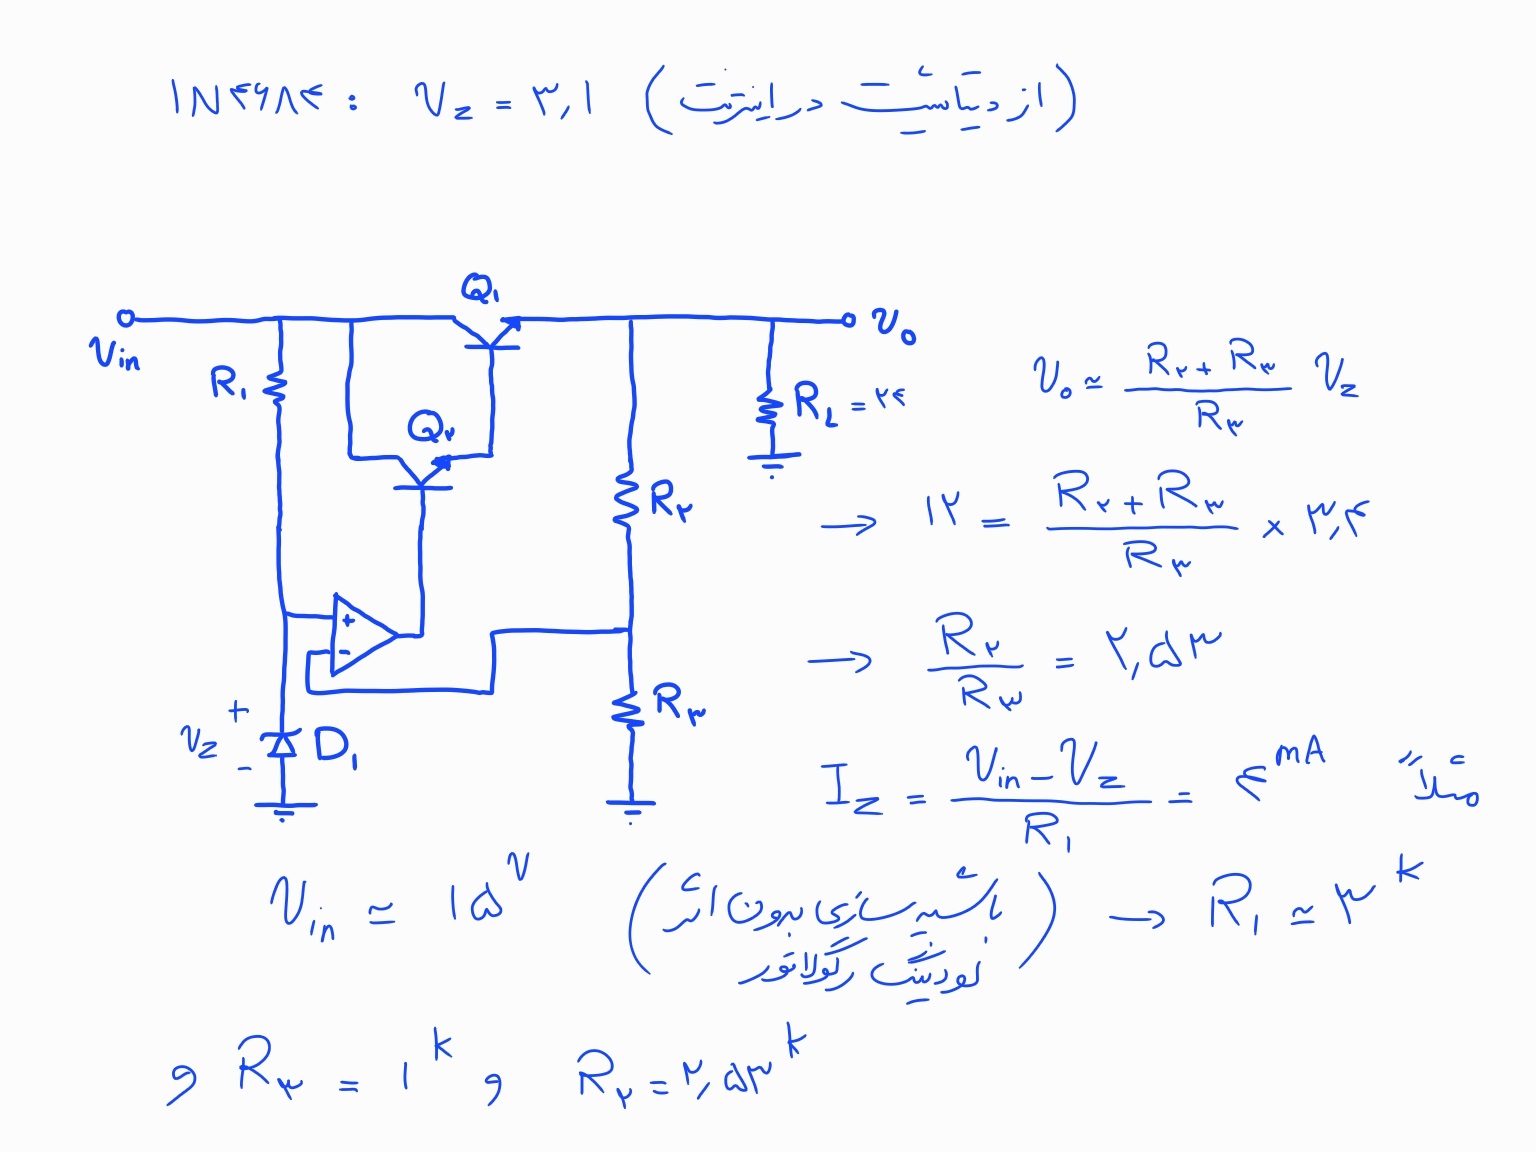 1N۴۶۸۴ : Vz = ۳,۱ (از دیتاشیت در اینترنت)
Q۱
Vin
Vo
R۱
Q۲
RL = ۲۴
Vo ≃ (R۲ + R۳) / R۳ Vz
R۲
→ ۱۲ = (R۲ + R۳) / R۳ × ۳,۴
+
-
→ R۲ / R۳ = ۲,۵۳
R۳
Vz + - D۱
Iz = (Vin - Vz) / R۱ = ۴ mA مثلاً
Vin ≃ ۱۵ V (با شبیه سازی بدون اثر
لودینگ رگولاتور) → R۱ ≃ ۳ k
و R۳ = ۱ k و R۲ = ۲,۵۳ k